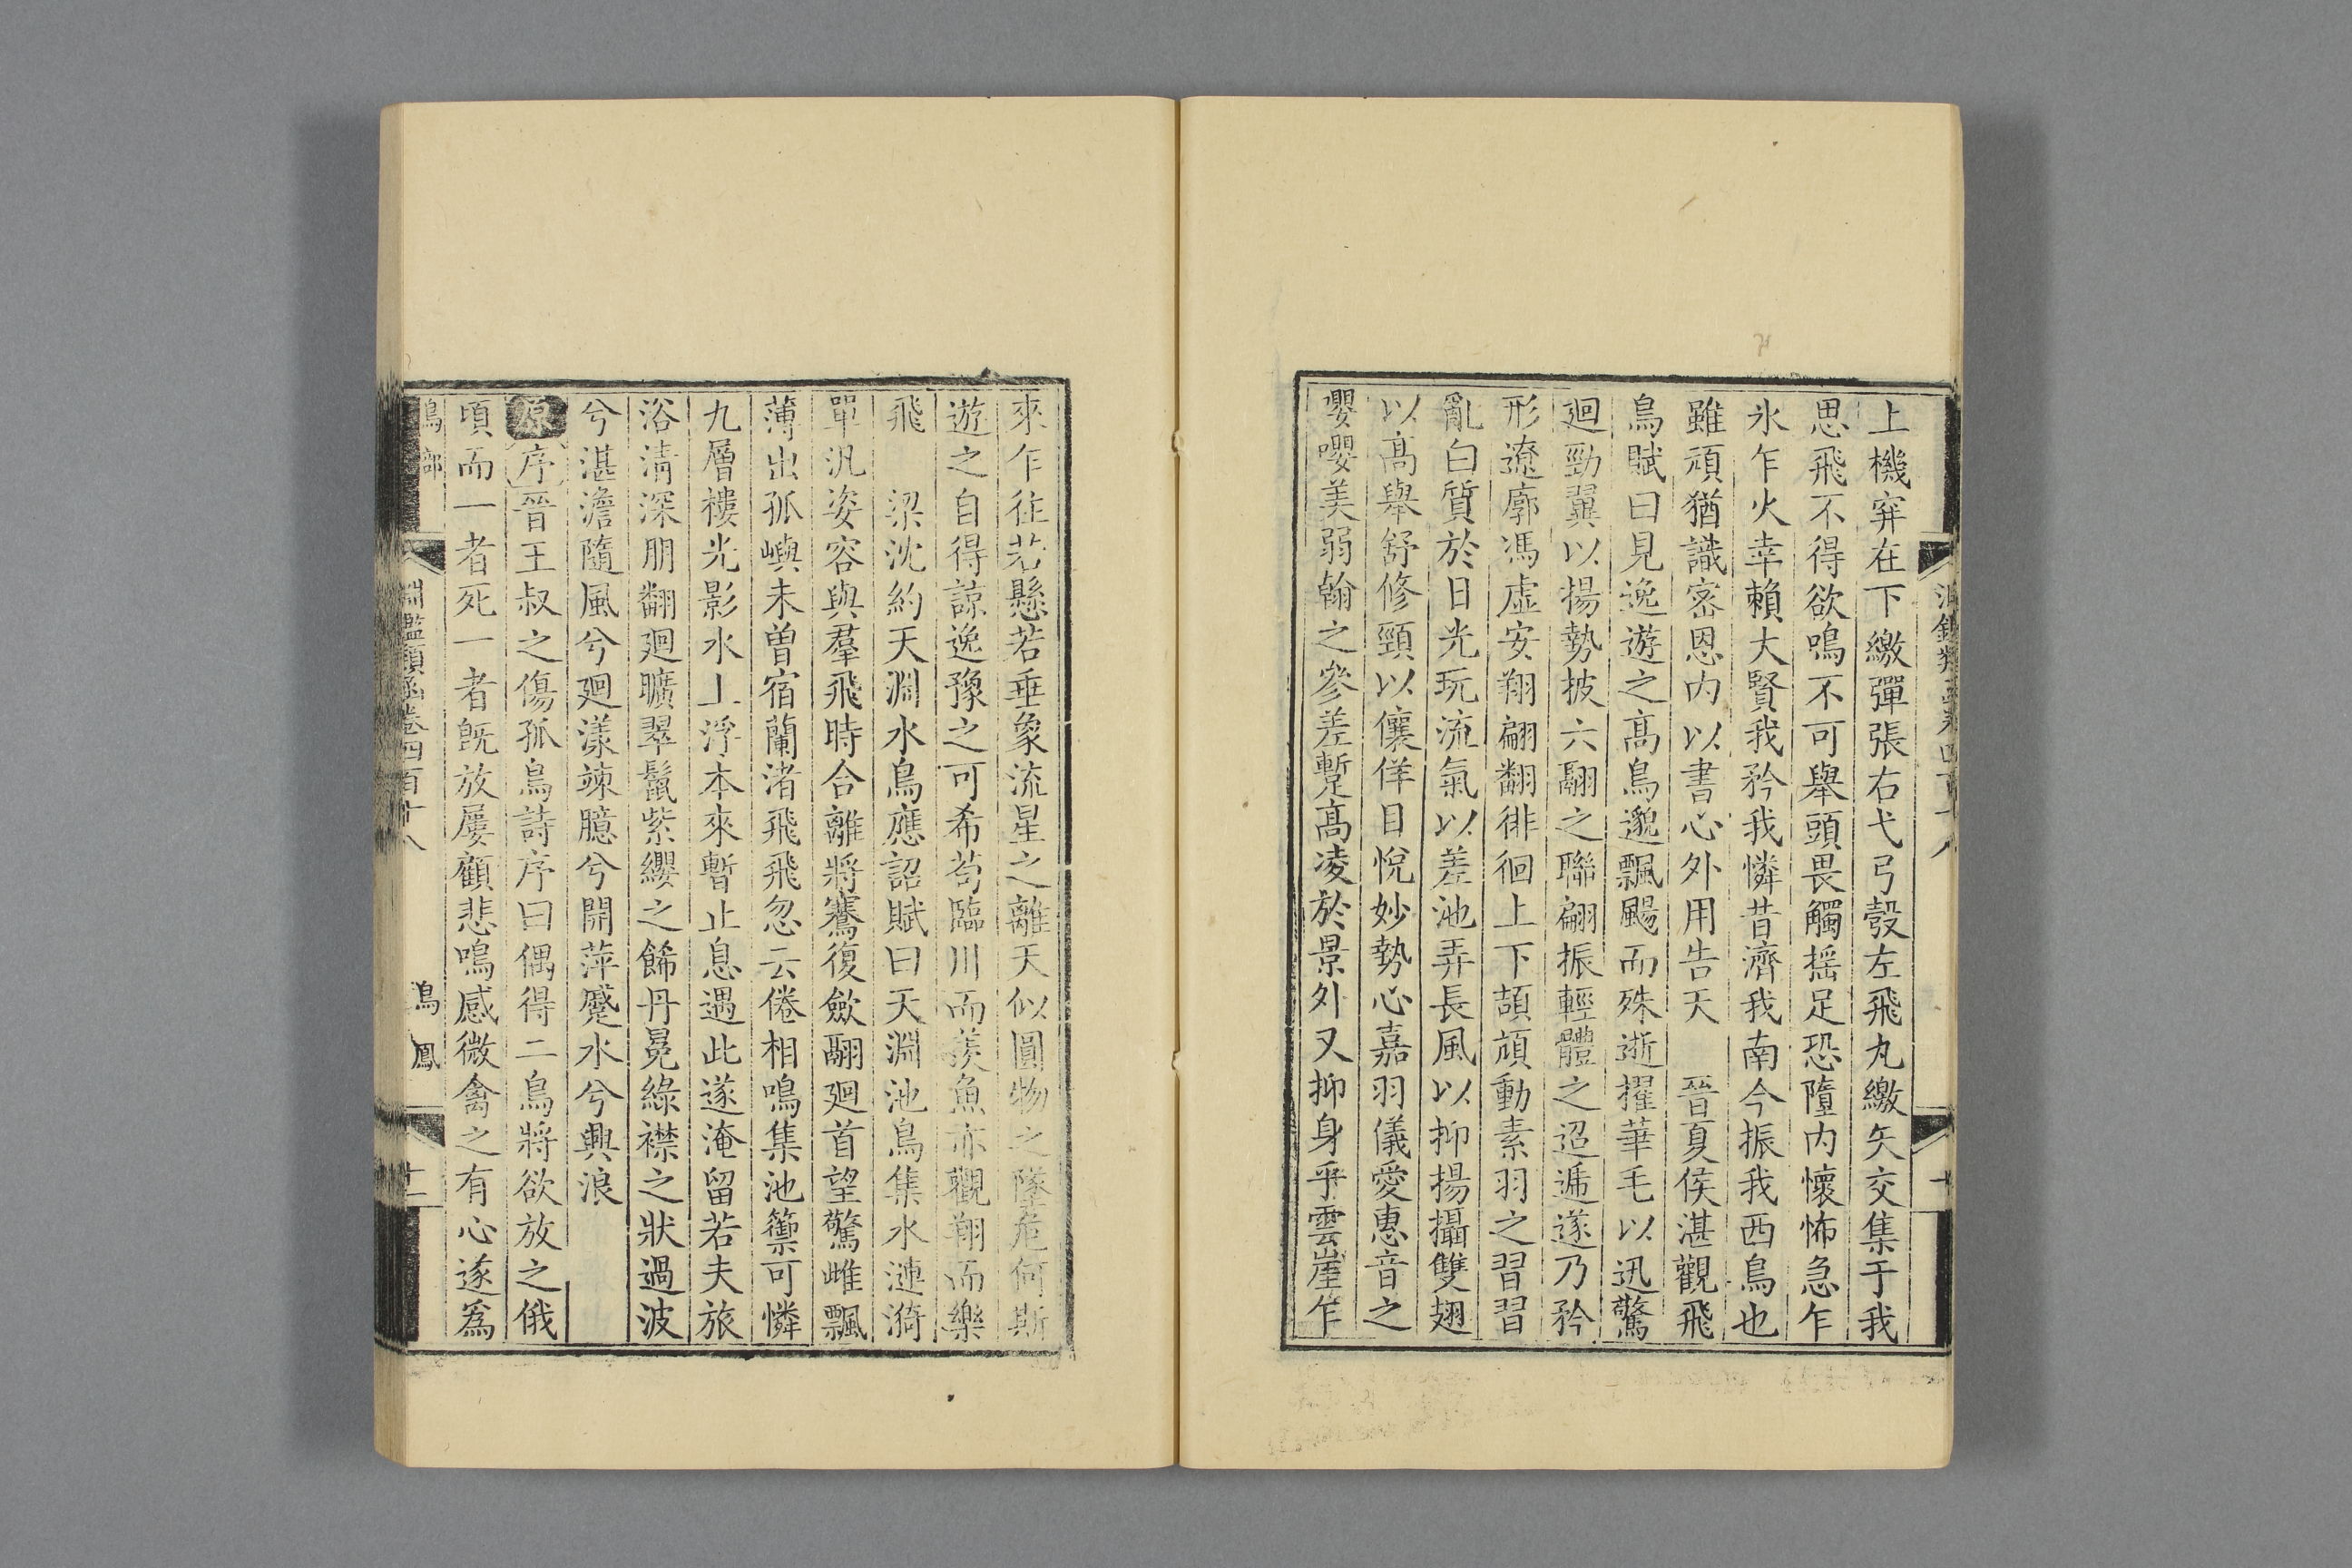 上機穽在下繳彈張右弋弓彀左飛丸繳矢交集于我
思飛不得欲鳴不可舉頭畏觸搖足恐隨內懷怖急乍
氷乍火幸賴大賢我矜我憐昔濟我南今振我西鳥也
雖頑猶識密恩內以書心外用告天　晉夏侯湛觀飛
鳥賦曰見逸遊之高鳥邈飄颺而殊逝擢華毛以迅驚
廻勁翼以揚勢披六翮之聯翩振輕體之迢遞遂乃矜
形遼廓馮虛安翔翩翻徘徊上下頡頏動素羽之習習
亂白質於日光玩流氣以差池弄長風以抑揚攝雙翅
以高舉舒修頸以儴佯目悅妙勢心嘉羽儀愛惠音之
嚶嚶美弱翰之參差蹔高凌於景外又抑身乎雲崖乍
來乍往若懸若垂象流星之離天似圓物之墜危何斯
遊之自得諒逸豫之可希苟臨川而羨魚亦觀翔而樂
飛　梁沈約天淵水鳥應詔賦曰天淵池鳥集水漣漪
單汎姿容與羣飛時合離將騫復斂翮廻首望驚雌飄
薄出孤嶼未曾宿蘭渚飛飛忽云倦相鳴集池籞可憐
九層樓光影水上浮本來暫止息遇此遂淹留若夫旅
浴清深朋翻廻曠翠鬛紫纓之飾丹冕綠襟之狀過波
兮湛澹隨風兮廻漾竦臆兮開萍蹙水兮興浪
原序晉王叔之傷孤鳥詩序曰偶得二鳥將欲放之俄
頃而一者死一者旣放屢顧悲鳴感微禽之有心遂爲
鳥部　淵鑑類函卷四百十八　鳥　鳳　十一